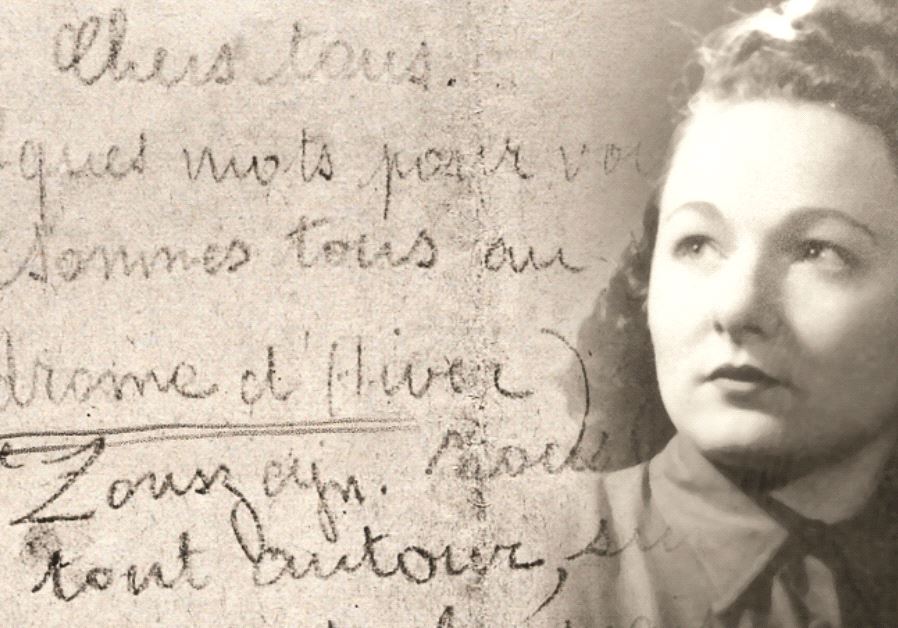 Chers tous.
ques mots pour vou
sommes tous au
drome d'Hiver)
tout autour, su